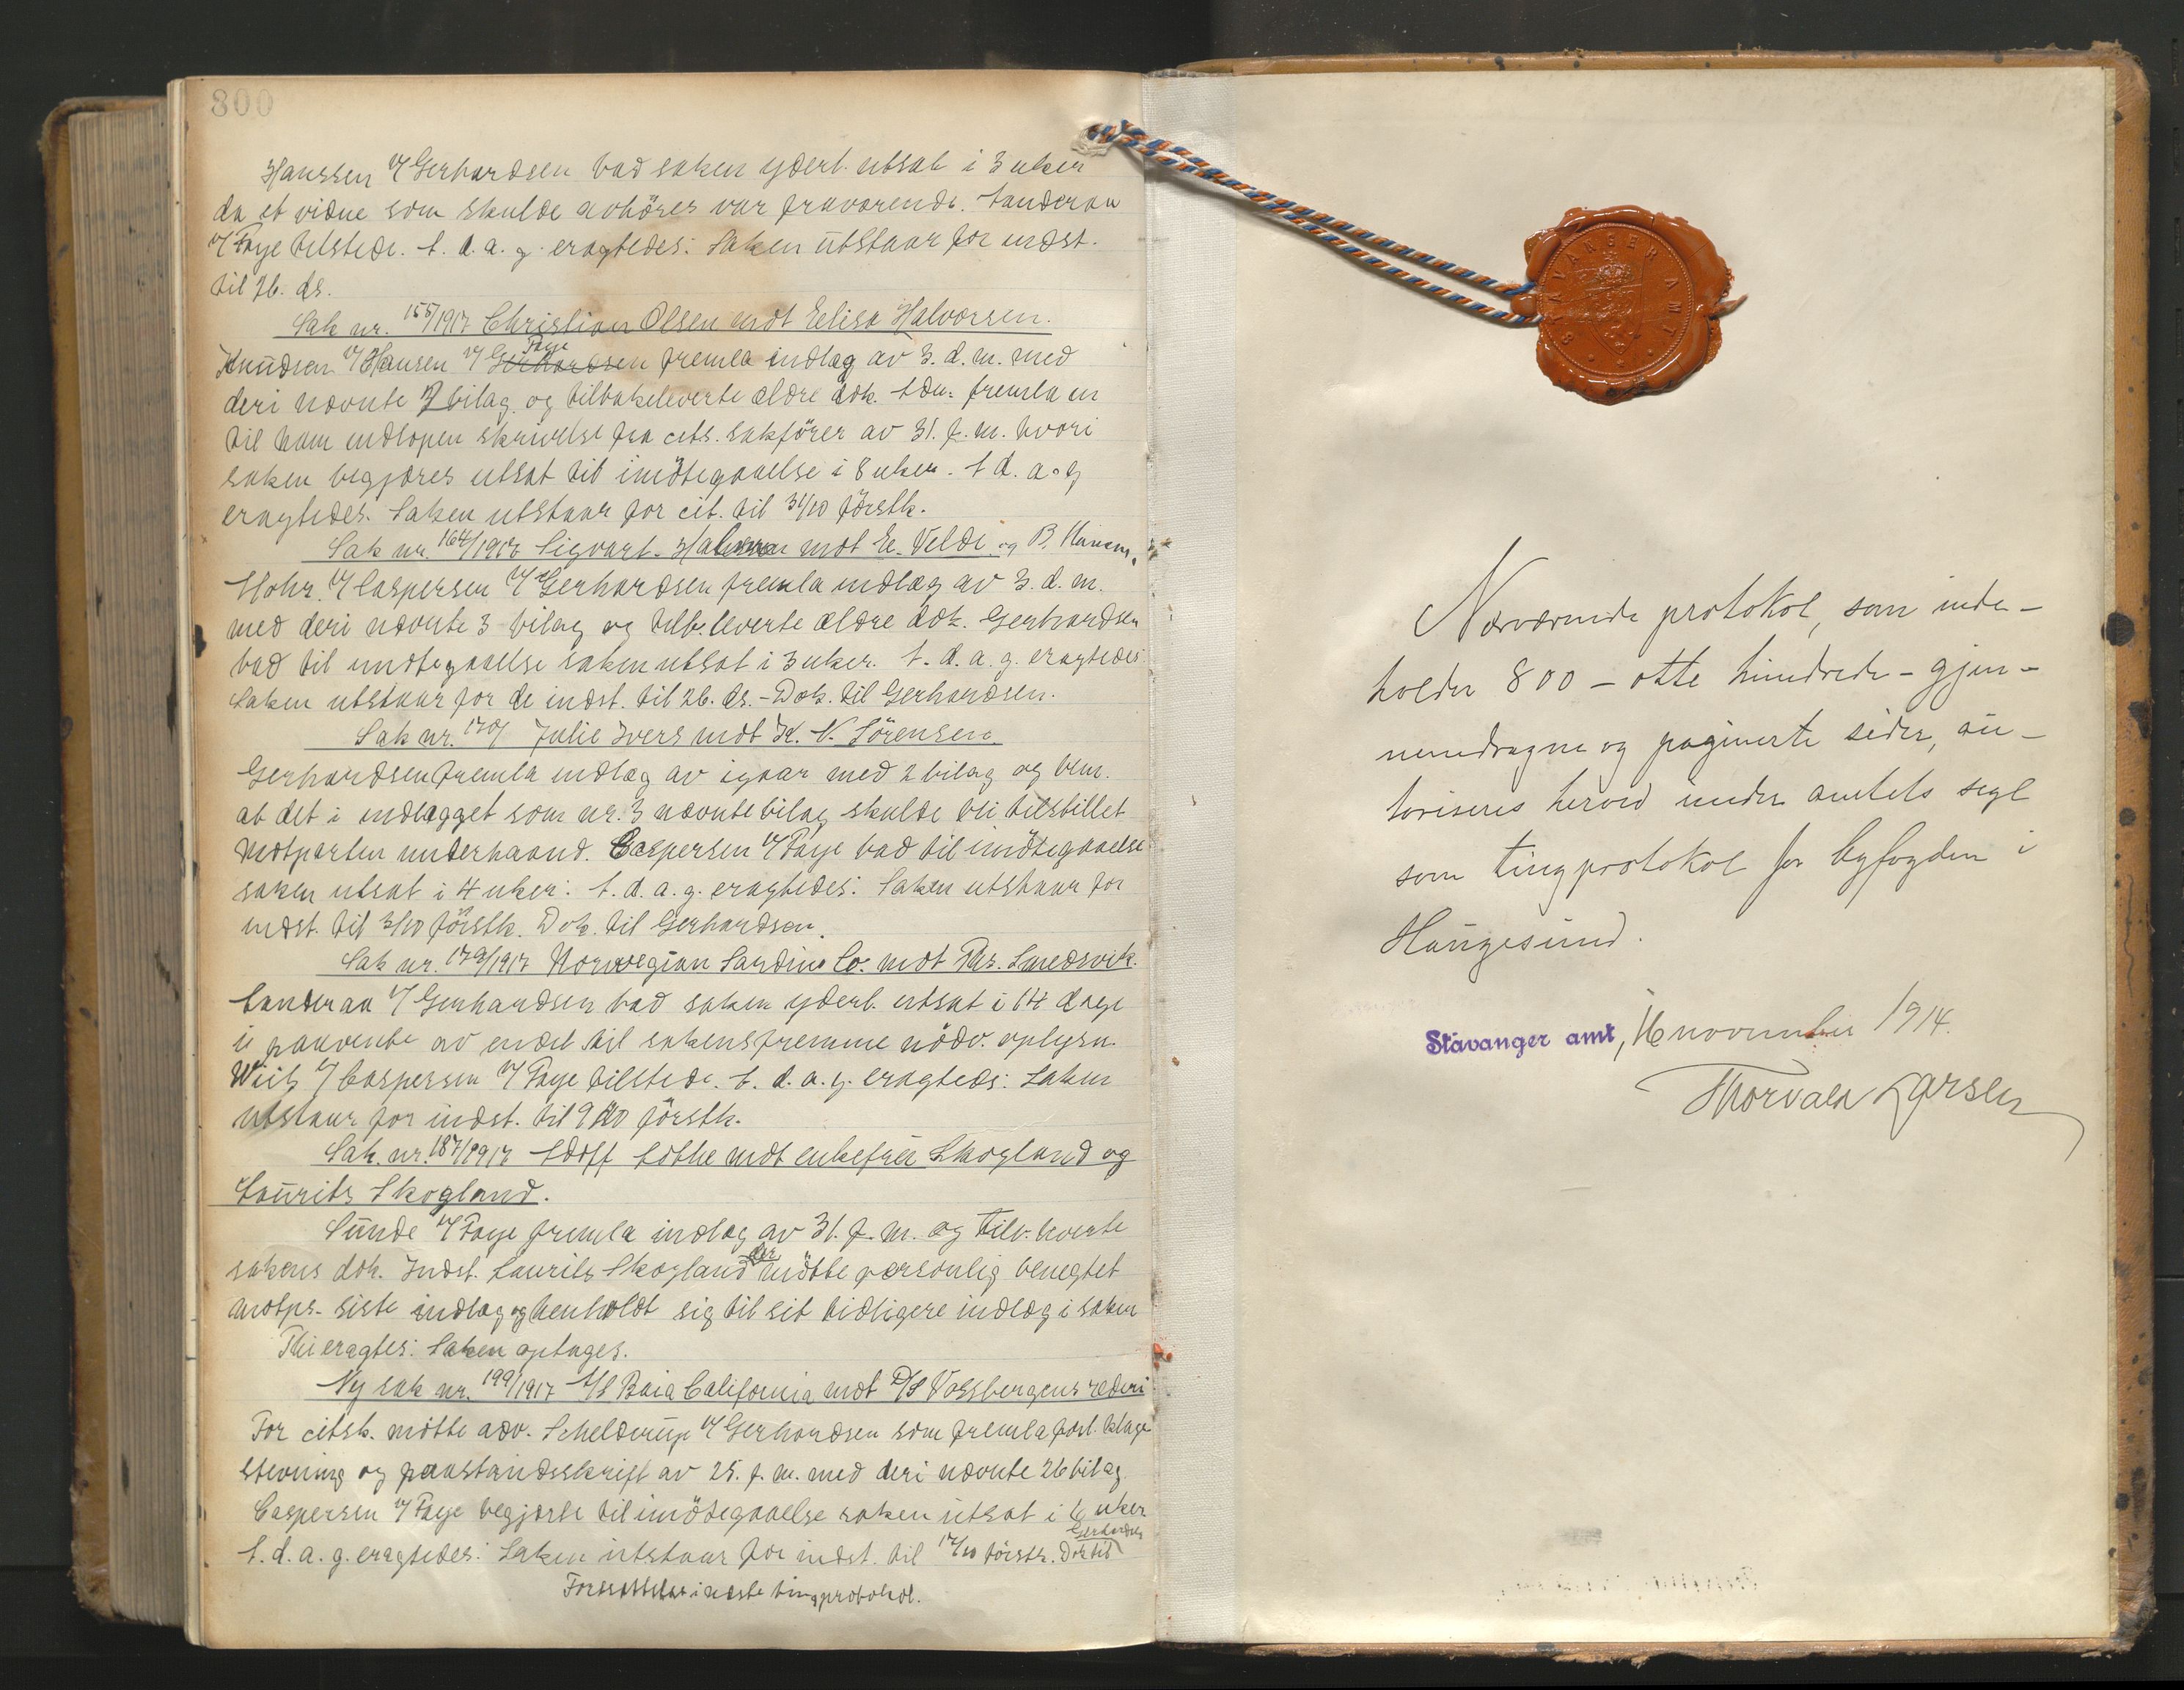 800
Hanssen v/ Gerhardsen bad saken yderl. utsat i 3 uker
da et vidne som skulde avhöres var fraværende. Sanderaa
v/ Faye tilstede. S. d. a. g. eragtedes: Saken utstaar for indst.
til 26. ds.
Sak nr. 155/1917 Christian Olsen mot Elisa Halvorsen.
Knudsen v/ Hansen v/ Gerhardsen Faye fremla indlæg av 3. d. m. med
deri nævnte 7 bilag og tilbakeleverte ældre dok. fremla en
til ham indlopen skrivelse fra cits. sakförer av 31. f. m. hvori
saken begjæres utsat til imötegaaelse i 8 uker. S d. a. g
eragtedes. Saken utstaar for cit. til 31/10 förstk.
Sak nr. 164/1917 Sigvart Halvorsen mot E. Velde og B. Hansen.
Mohr v/ Caspersen v/ Gerhardsen fremla indlæg av 3. d. m.
med deri nævnte 3 bilag og tilb.leverte ældre dok. Gerhardsen
bad til imötegaaelse saken utsat i 3 uker. S. d. a. g. eragtedes:
Saken utstaar for de indst. til 26. ds. - Dok. til Gerhardsen.
Sak nr. 170/ Julie Ivers mot K. N. Sörensen.
Gerhardsen fremla indlæg av igaar med 2 bilag og bem.
at det i indlægget som nr. 3 nævnte bilag skulde bli tilstillet
motparten underhaand. Caspersen v/ Faye bad til imötegaaelse
saken utsat i 4 uker. S. d. a. g. eragtedes: Saken utstaar for
indst. til 3/10 förstk. Dok. til Gerhardsen.
Sak nr. 179/1917 Norwegian Sardine Co. mot Ths. Smedsvik.
Sanderaa v/ Gerhardsen bad saken yderl. utsat i 14 dage
i paavente av endel til sakens fremme nödv. oplysn.
Wiig v/ Caspersen v/ Faye tilstede. S. d. a. g. eragtedes: Saken
utstaar for indst. til 9/10 förstk.
Sak. nr. 187/1917 Adolf Lothe mot enkefru Skogland og
Laurits Skogland.
Sunde v/ Faye fremla indlæg av 31. f. m. og tilb.leverte
sakens dok. Indst. Laurits Skogland der mötte personlig benegtet
motps. siste indlæg og henholdt sig til sit tidligere indlæg i saken
Thi eragtes: Saken optages.
Ny sak nr. 199/1917 A/S Baia California mot D/S Vossbergens rederi
For citsk. mötte adv. Schelderup v/ Gerhardsen som fremla forl. klage
stevning og paastandsskrift av 25. f. m. med deri nævnte 26 bilag.
Caspersen v/ Faye begjærte til imötegaaelse saken utsat i 6 uker
S. d. a. g. eragtedes: Saken utstaar for indst. til 17/10 förstk. Dok til Gerhardsen
Forsættelse i næste tingprotokol.
STAVANGER AMT
Nærværende protokol, som inde-
holder 800 - otte hundrede - gjen-
nemdragne og paginerte sider, au-
toriseres herved under amtets segl
som tingprotokol for byfogden i
Haugesund.
Stavanger amt, 16 november 1914.
Thorvald Larsen